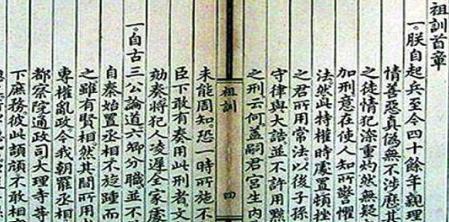 祖訓首章
一。朕自起兵至今四十餘年親理
情善惡真偽無不涉歷
之徒情犯深重灼然無疑
加刑意在使人知所警懼
法然此特權時處置頓挫
之君所用常法以後子孫
守律與大誥並不許用黥
之刑云何蓋嗣君宮生內
祖訓 四
未能周知恐一時所施不
臣下敢有奏用此刑者文
劾奏將犯人凌遲全家處
一。自古三公論道六卿分職並不
自秦始置丞相不旋踵而
之雖有賢相然其間所用
專權亂政今我朝罷丞相
都察院通政司大理寺等
下庶務彼此頡頏不敢相